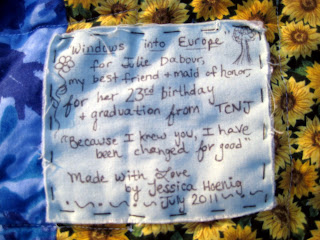 "Windows into Europe"
for Julie Dabour,
my best friend + maid of honor,
for her 23rd birthday
+ graduation from TCNJ
"Because I knew you, I have
been changed for good"
Made with Love
by Jessica Hoenig
July 2011